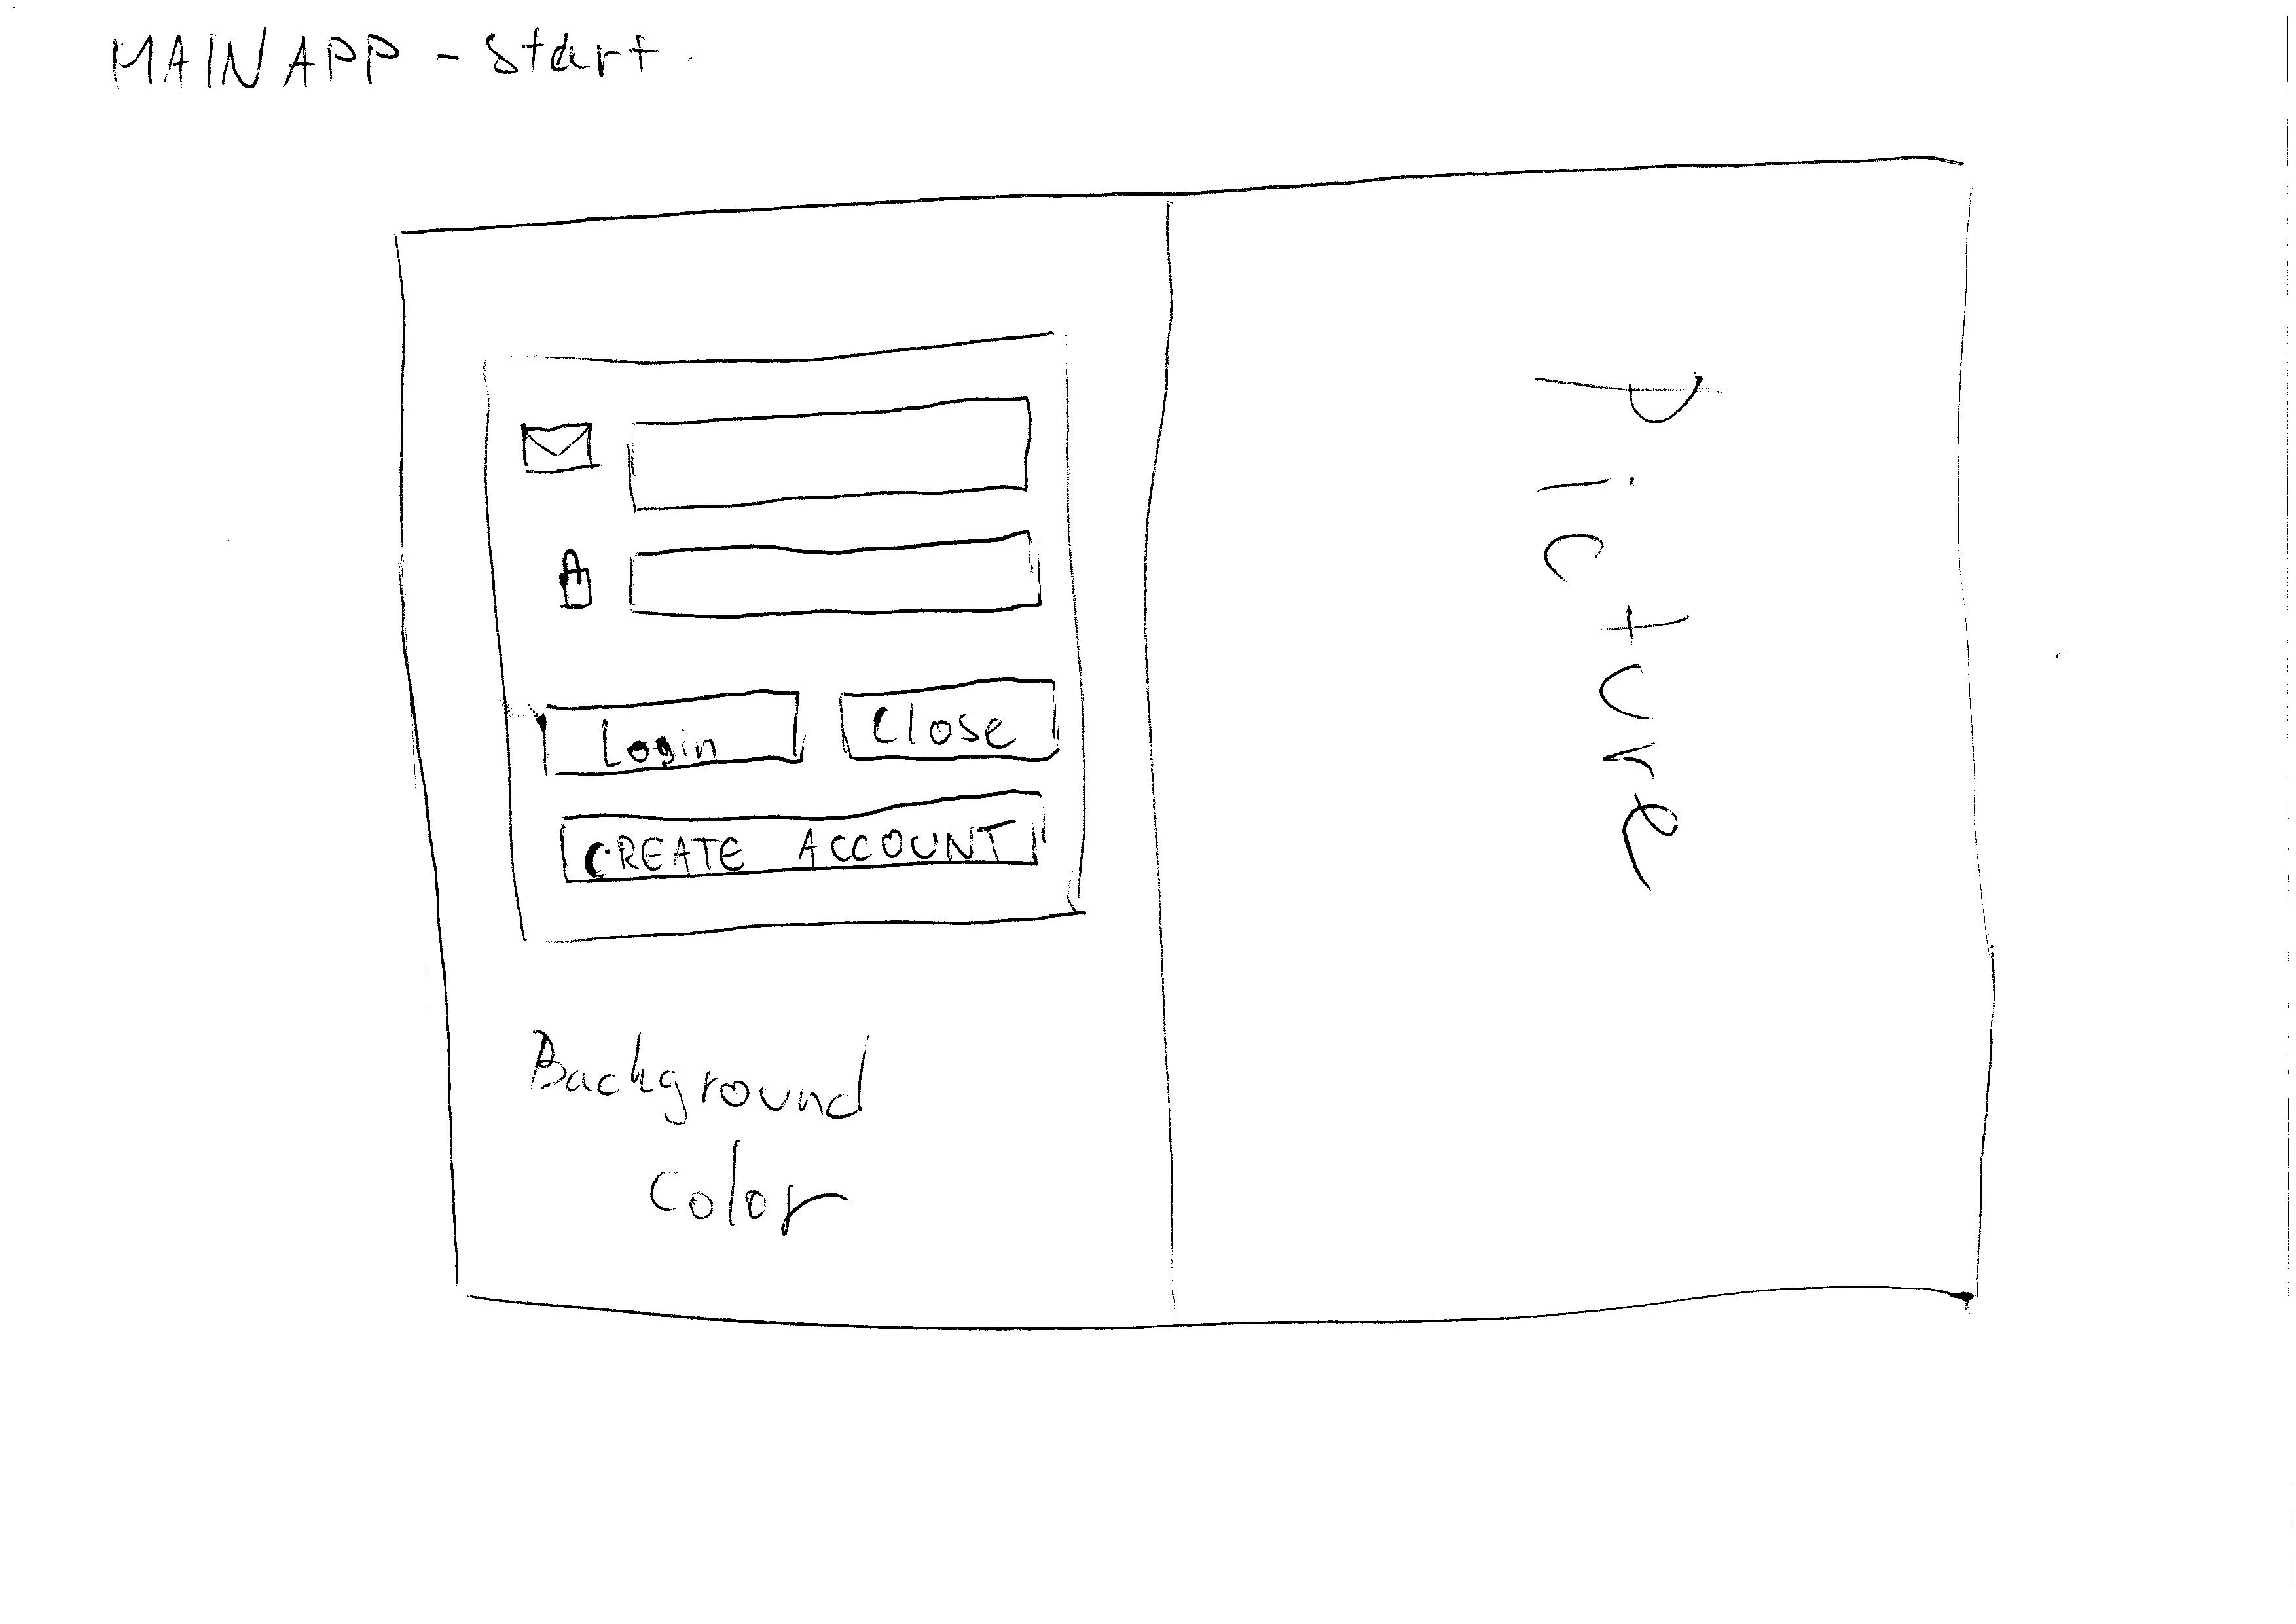 MAIN APP - Start
Login
Close
CREATE ACCOUNT
Background
color
Picture